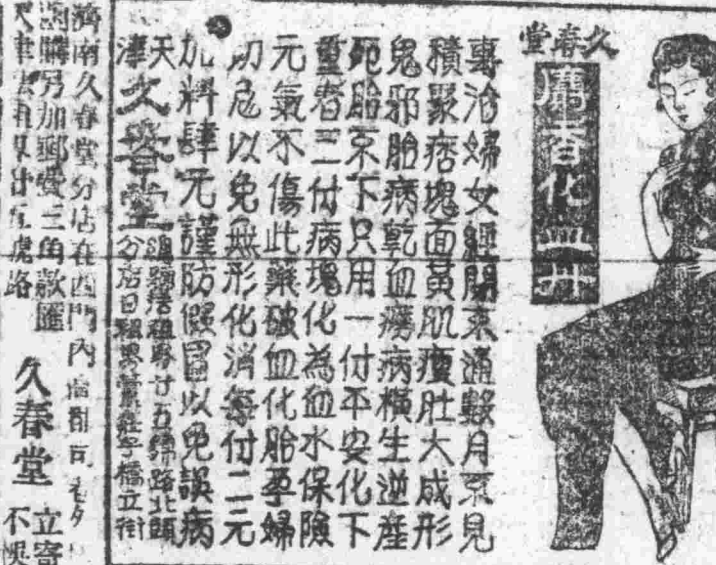 久春堂
麝香化血丹
專治婦女經閉不通數月不見
積聚痞塊面黃肌瘦肚大成形
鬼邪胎病乾血癆病橫生逆產
死胎不下只用一付平安化下
重者二付病塊化為血水保險
元氣不傷此藥破血化胎孕婦
切忌以免無形化消每付二元
加料肆元謹防假冒以免誤病
天津久春堂
總號法租界廿五號路北頭
分店日租界
橋立街
濟南久春堂分店在西門內
函購另加郵費三角款匯
天津法租界廿五號路
久春堂
立寄
不悞